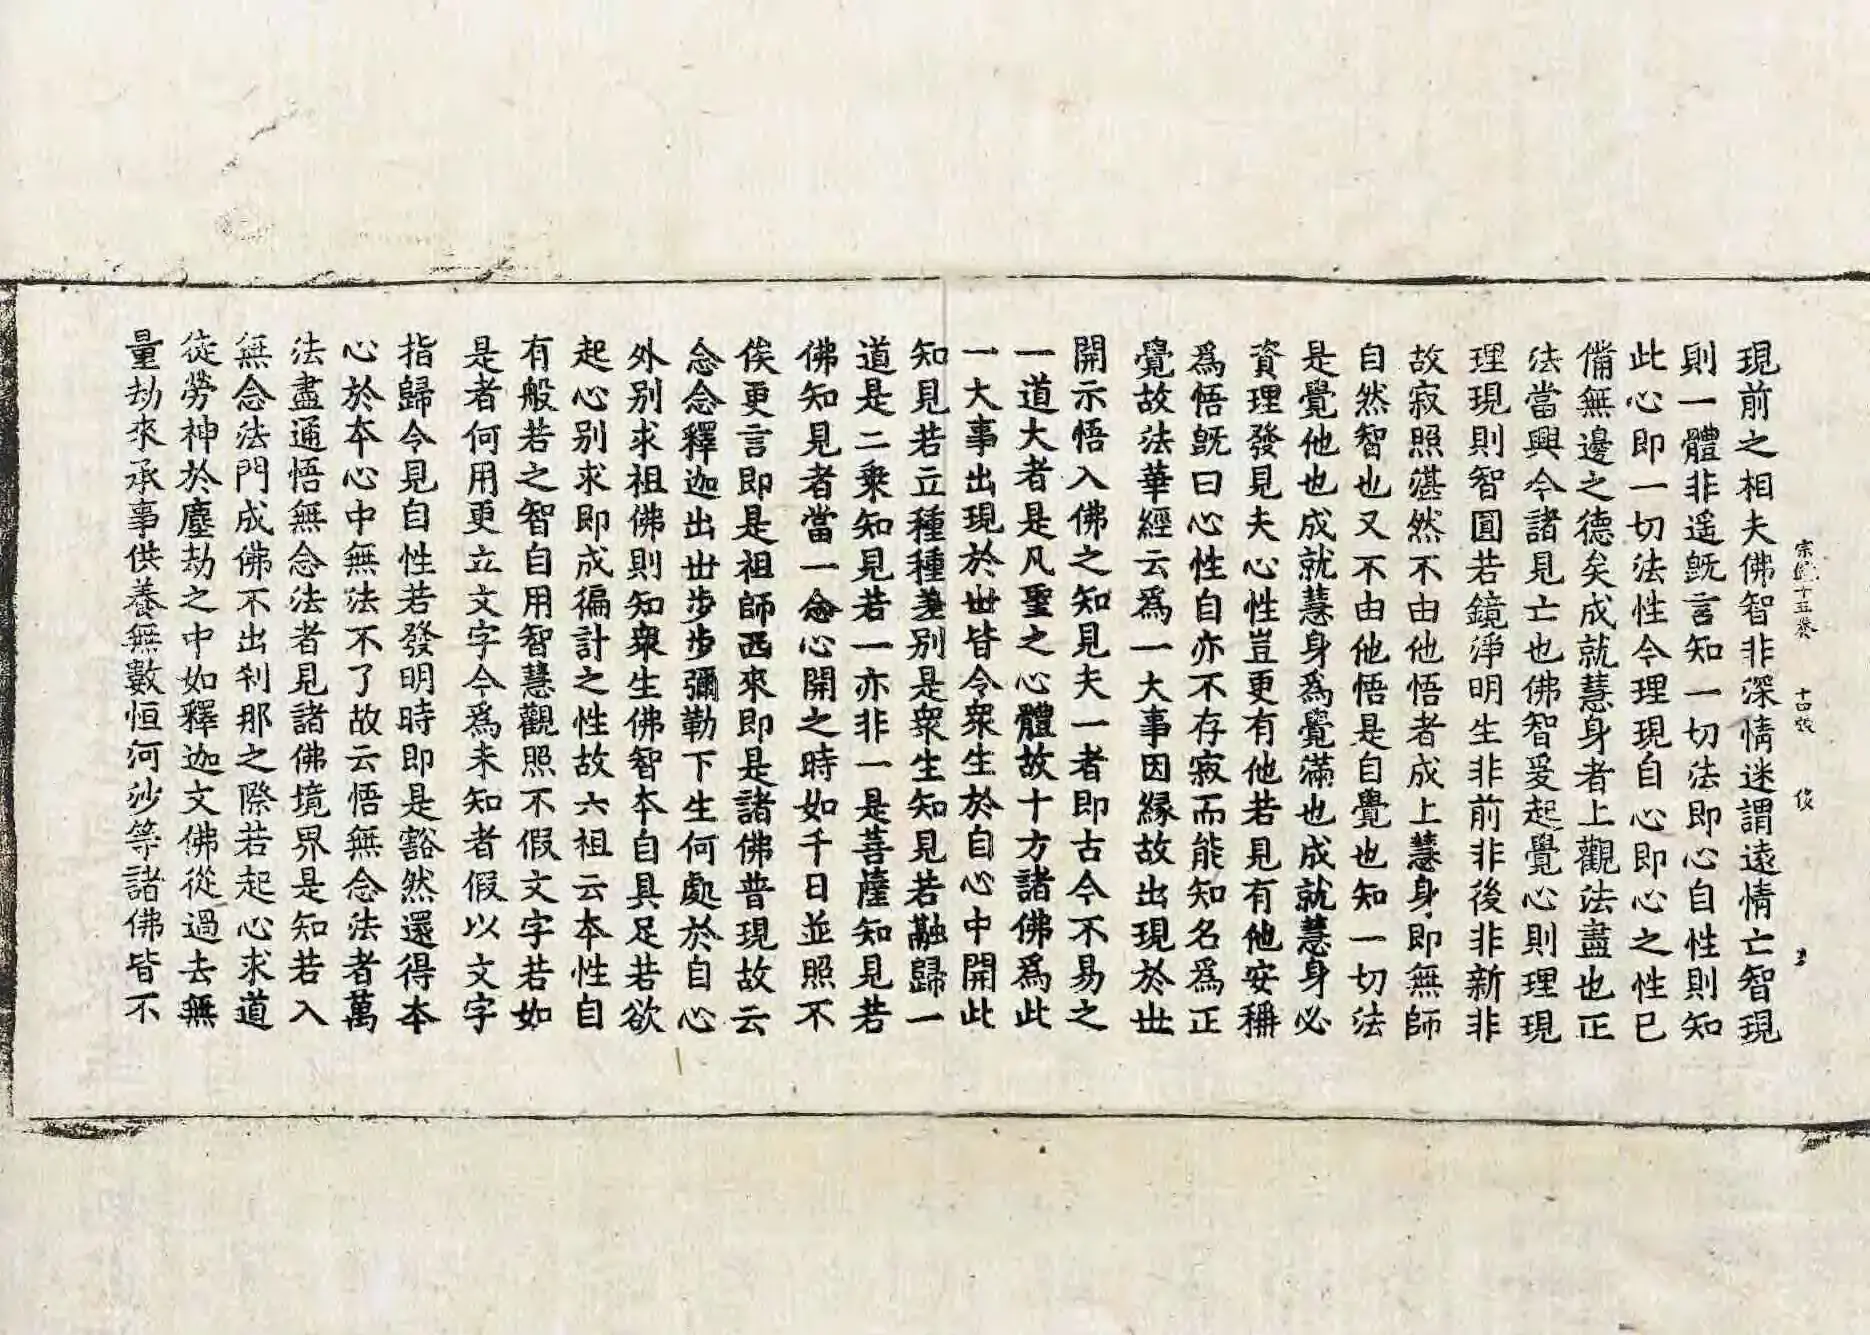 宗鏡十五卷　十四張　俊
現前之相夫佛智非深情迷謂遠情亡智現
則一體非遥旣言知一切法即心自性則知
此心即一切法性今理現自心即心之性已
備無邊之德矣成就慧身者上觀法盡也正
法當興今諸見亡也佛智爰起覺心則理現
理現則智圓若鏡淨明生非前非後非新非
故寂照湛然不由他悟者成上慧身即無師
自然智也又不由他悟是自覺也知一切法
是覺他也成就慧身爲覺滿也成就慧身必
資理發見夫心性豈更有他若見有他安稱
爲悟旣曰心性自亦不存寂而能知名爲正
覺故法華經云爲一大事因緣故出現於世
開示悟入佛之知見夫一者即古今不易之
一道大者是凡聖之心體故十方諸佛爲此
一大事出現於世皆令衆生於自心中開此
知見若立種種差別是衆生知見若融歸一
道是二乘知見若一亦非一是菩薩知見若
佛知見者當一念心開之時如千日並照不
俟更言即是祖師西來即是諸佛普現故云
念念釋迦出世步步彌勒下生何處於自心
外别求祖佛則知衆生佛智本自具足若欲
起心別求即成徧計之性故六祖云本性自
有般若之智自用智慧觀照不假文字若如
是者何用更立文字今爲未知者假以文字
指歸令見自性若發明時即是豁然還得本
心於本心中無法不了故云悟無念法者萬
法盡通悟無念法者見諸佛境界是知若入
無念法門成佛不出刹那之際若起心求道
徒勞神於塵劫之中如釋迦文佛從過去無
量劫來承事供養無數恒河沙等諸佛皆不